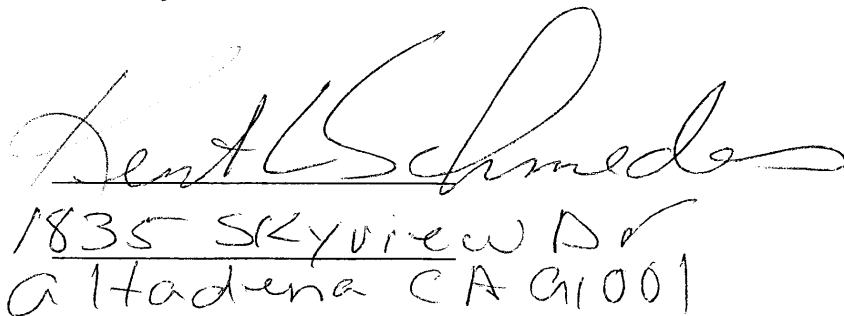 Kent L Schmedes
1835 Skyview Dr
Altadena CA 91001